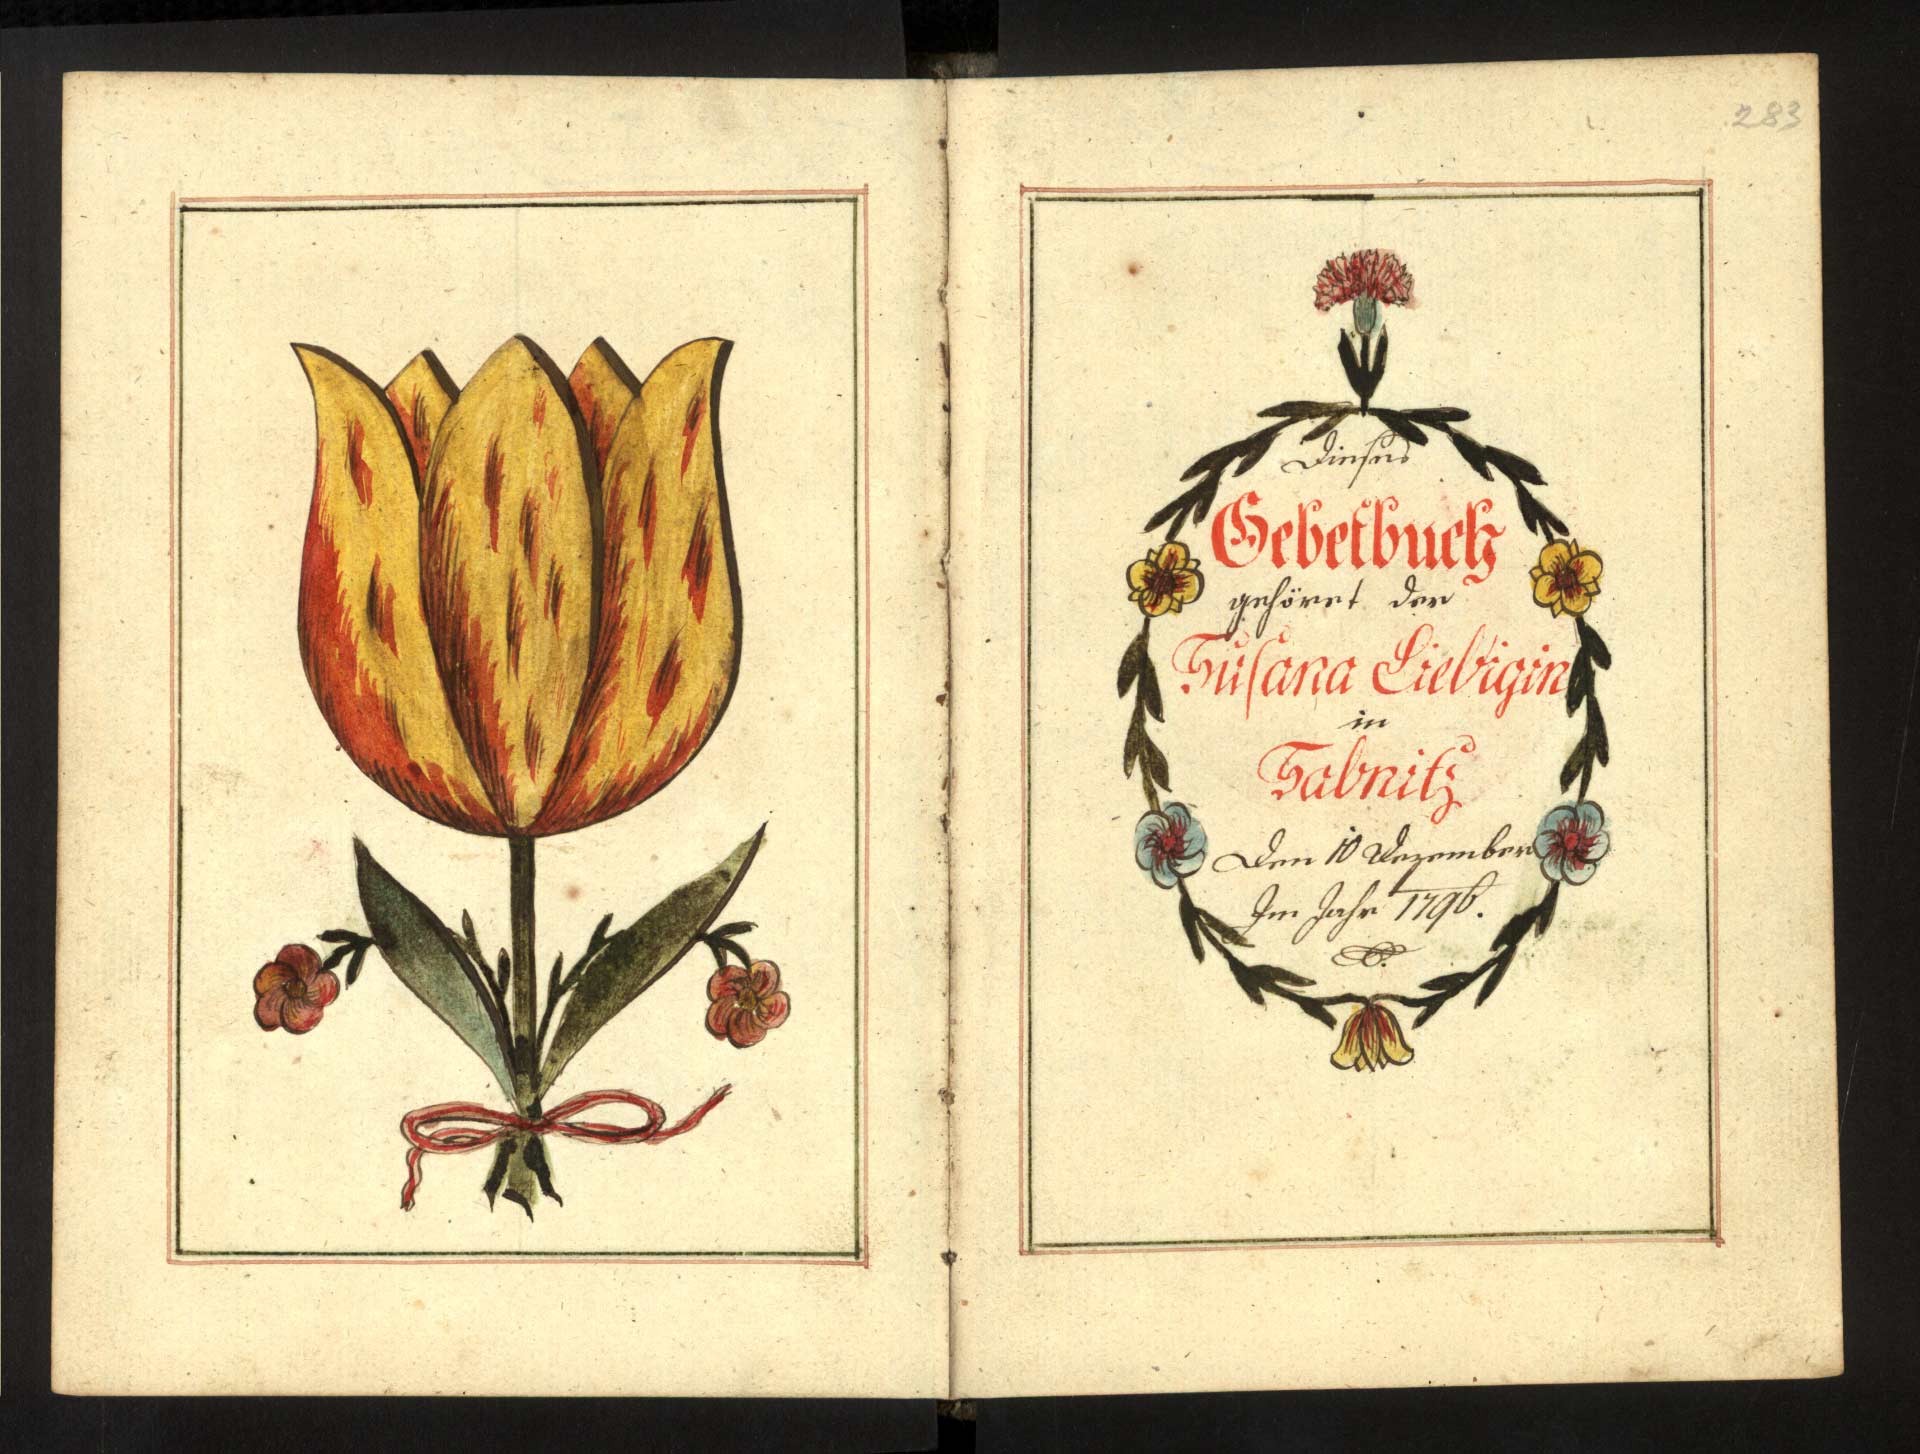 283
Dieses
Gebetbuch
gehöret der
Susana Liebigin
in
Sabnitz
Den 10 Dezember
Im Jahr 1796.